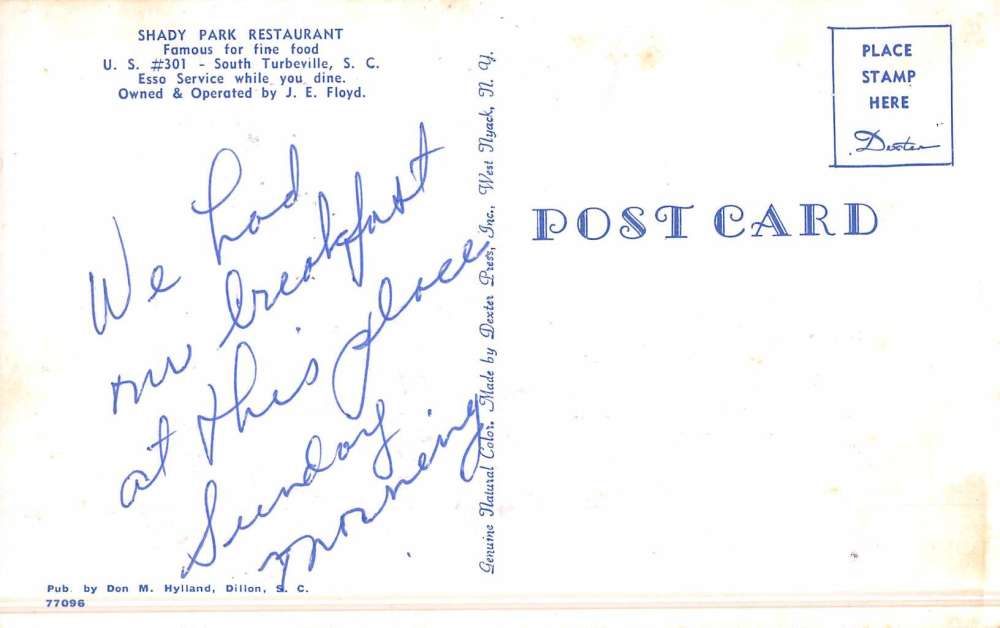 SHADY PARK RESTAURANT
Famous for fine food
U. S. #301 - South Turbeville, S. C.
Esso Service while you dine.
Owned & Operated by J. E. Floyd.
We had
our breakfast
at this place
Sunday
morning
.
Pub. by Don M. Hylland, Dillon, S. C.
77096
Genuine Natural Color. Made by Dexter Press, Inc., West Nyack, N. Y.
PLACE
STAMP
HERE
Dexter
POST CARD